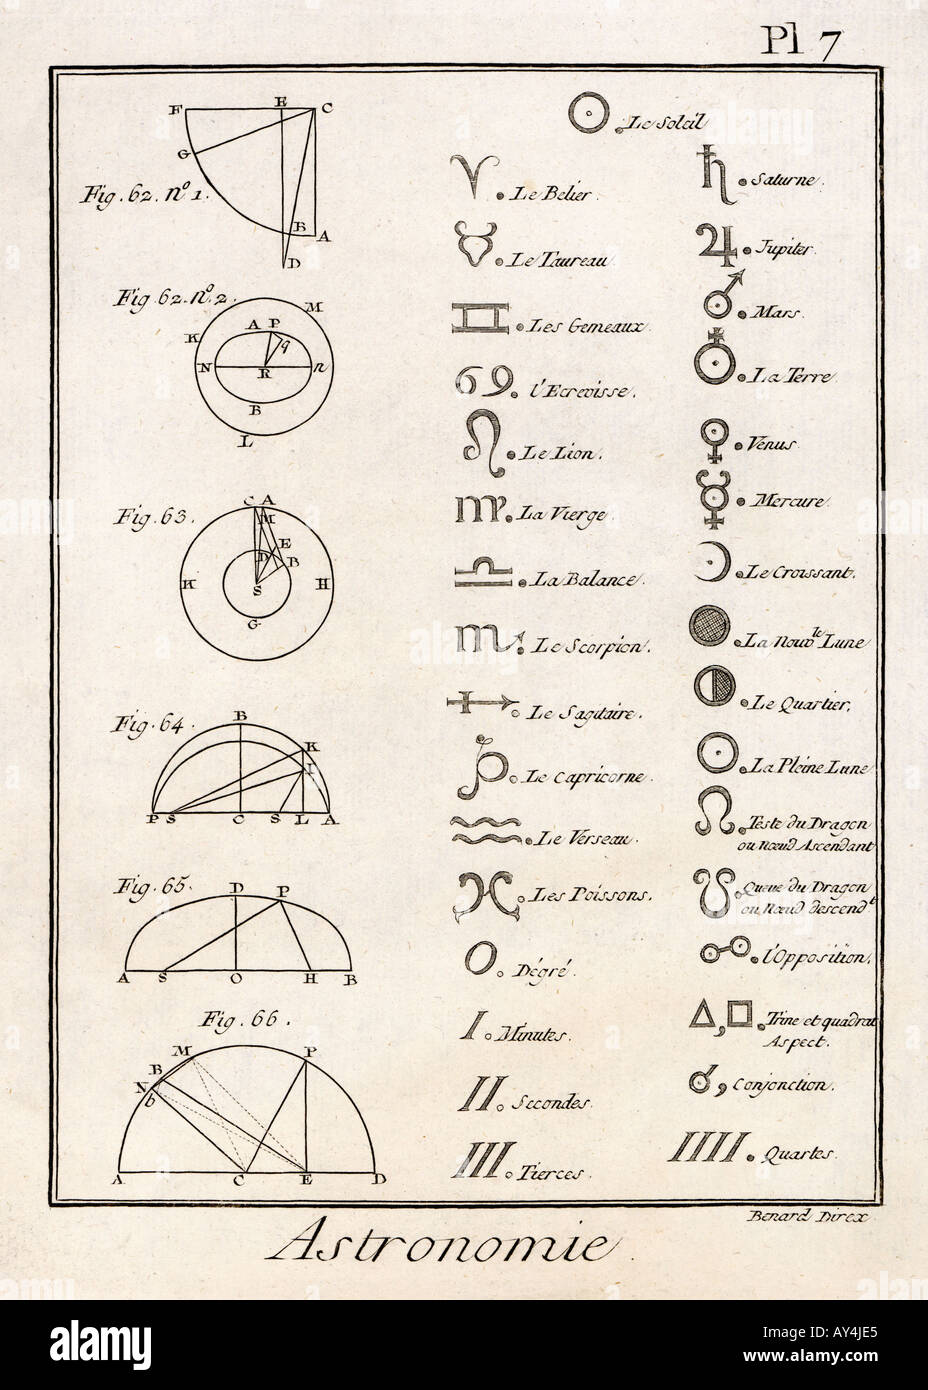 Pl 7
F E C
G
Fig. 62. nº 1.
B A
D
Fig. 62. nº 2.
M
K A P
q
N R n
B
L
Fig. 63.
C A
M
E
D B
K S H
G
Fig. 64.
B
K
I
P S C S L A
Fig. 65.
D P
A S O H B
Fig. 66.
M P
B
N b
A C E D
Le Soleil
Le Belier.
Le Taureau
Les Gemeaux.
l'Ecrevisse.
Le Lion.
La Vierge.
La Balance.
Le Scorpion.
Le Sagitaire.
Le Capricorne.
Le Verseau.
Les Poissons.
Dégré.
I. Minutes.
II. Secondes.
III. Tierces.
Saturne.
Jupiter.
Mars.
La Terre.
Venus
Mercure.
Le Croissant.
La Nouv.le Lune
Le Quartier.
La Pleine Lune
Teste du Dragon
ou Nœud Ascendant
Queue du Dragon
ou Nœud descend.t
l'Opposition.
Trine et quadrat
Aspect.
Conjonction.
IIII. Quartes.
Benard Direx
Astronomie.
alamy
Image ID: AY4JE5
www.alamy.com